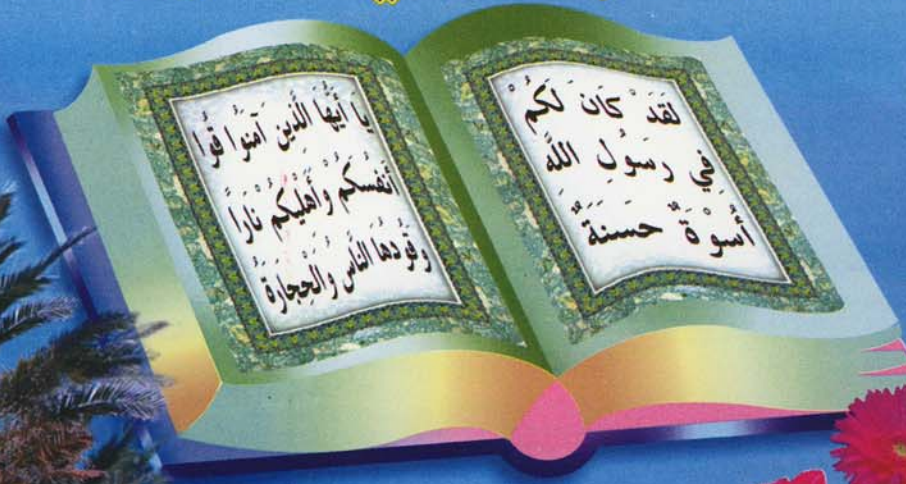 لقَدْ كَانَ لَكُمْ
فِي رَسُولِ اللَّهِ
أُسْوَةٌ حَسَنَةٌ
يا أيُّهَا الَّذِين آمَنُوا قُوا
أنفُسَكُم وَأَهْلِيكُم نَارًا
وقُودُهَا النَّاسُ وَالْحِجَارَةُ